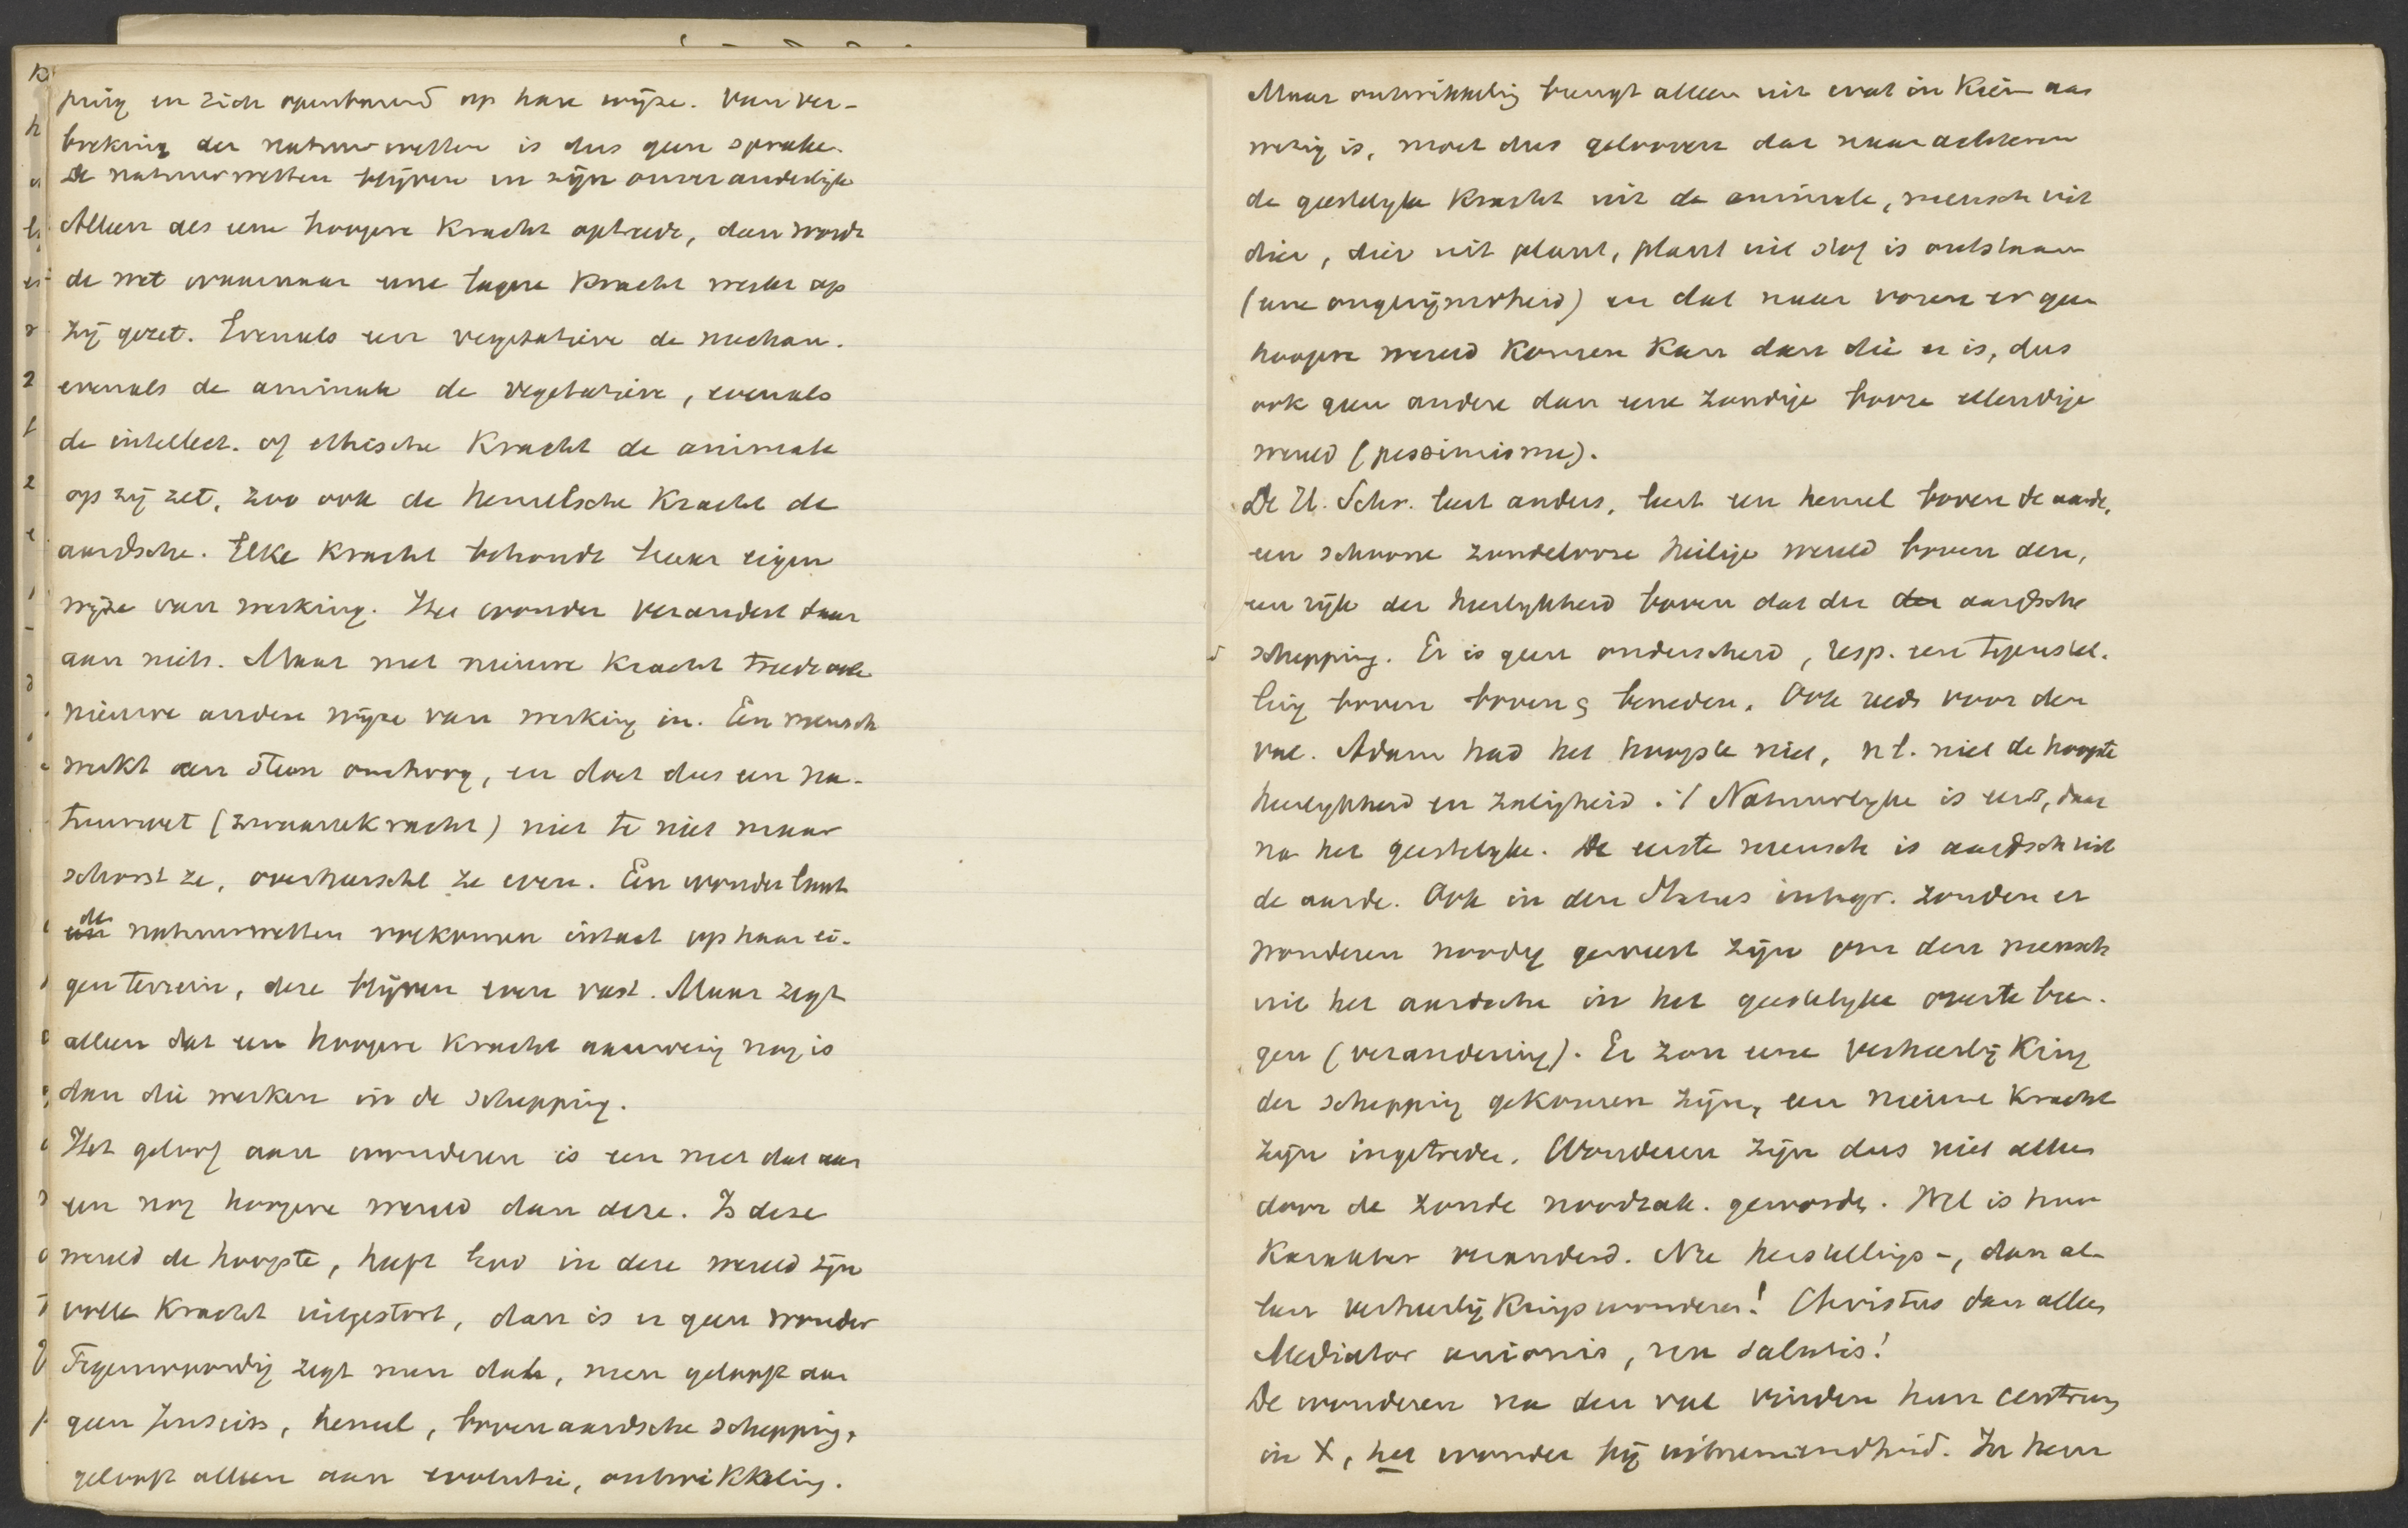 ping en zich openbarend op hare wijze. Van ver-
breking der natuurwetten is dus geen sprake.
De natuurwetten blijven en zijn onveranderlijk
Alleen als eene hoogere Kracht optreedt, dan wordt
de wet waarnaar eene lagere Kracht werkt op
zij gezet. Evenals een vegetatieve de mechan.
evenals de animale de vegetatieve, evenals
de intellect. of ethische Kracht de animale
op zij zet, zoo ook de hemelsche Kracht de
aardsche. Elke Kracht behoudt haar eigen
wijze van werking. Het wonder verandert daar
aan niets. Maar met nieuwe Kracht treedt ook
nieuwe andere wijze van werking in. Een mensch
werkt een steen omhoog, en doet dus een na-
tuurwet (zwaartekracht) niet te niet maar
schorst ze, overheerscht ze even. Een wonder laat
de natuurwetten volkomen intact op haar ei-
gen terrein, deze blijven even vast. Maar zegt
alleen dat een hoogere Kracht aanwezig nog is
dan die werken in de schepping.
Het geloof aan wonderen is een met dat aan
een nog hoogere wereld dan deze. Is deze
wereld de hoogste, heeft God in deze wereld zijn
volle Kracht uitgestort, dan is er geen wonder
Tegenwoordig zegt men dat, men gelooft aan
geen Jenseits, hemel, bovenaardsche schepping,
gelooft alleen aan evolutie, ontwikkeling.
Maar ontwikkeling brengt alleen uit wat in Kiem aan
wezig is, moet dus gelooven dat naar achteren
de geestelyke Kracht uit de animale, mensch uit
dier, dier uit plant, plant uit stof is ontstaan
(eene ongerijmdheid) en dat naar voren er geen
hoogere wereld komen kan dan die er is, dus
ook geen andere dan eene zondige booze ellendige
wereld (pessimisme).
De H. Schr. leert anders, leert een hemel boven de aarde,
een schoone zondelooze heilige wereld boven den,
een rijk der heerlykheid boven dat der der aardsche
schepping. Er is geen onderscheid, resp. een tegenstel-
ling tusschen boven & beneden. Ook reeds voor den
val. Adam had het hoogste niet, nl. niet de hoogste
heerlykheid en zaligheid. :/ Natuurlyke is eerst, daar
na het geestelyke. De eerste mensch is aardsch uit
de aarde. Ook in den Status integr. zouden er
wonderen noodig geweest zijn om den mensch
uit het aardsche in het geestelyke over te bren-
gen (verandering). Er zou eene verheerlijking
der schepping gekomen zijn, een nieuwe Kracht
zijn ingetreden. Wonderen zijn dus niet alleen
door de zonde noodzak. geworden. Wel is hun
Karakter veranderd. Nu herstellings-, dan al-
leen verheerlijkingswonderen! Christus dan alleen
Mediator unionis, non salutis!
De wonderen na den val vinden hun centrum
in X, het wonder bij uitnemendheid. In hem